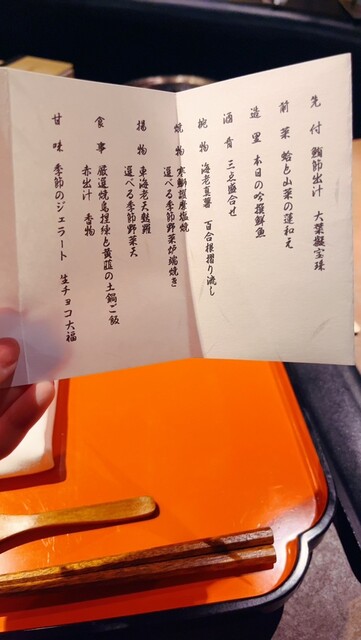 先付 鮪節出汁 大葉擬宝珠
前菜 蛤と山菜の蓮和え
造里 本日の吟撰鮮魚
酒肴 三点盛合せ
椀物 海老真薯 百合根摺り流し
焼物 寒鰤薩摩塩焼
選べる季節野菜炉端焼き
揚物 車海老天麩羅
選べる季節野菜天
食事 厳選焼鳥捏棒と黄韮の土鍋ご飯
赤出汁 香物
甘味 季節のジェラート 生チョコ大福